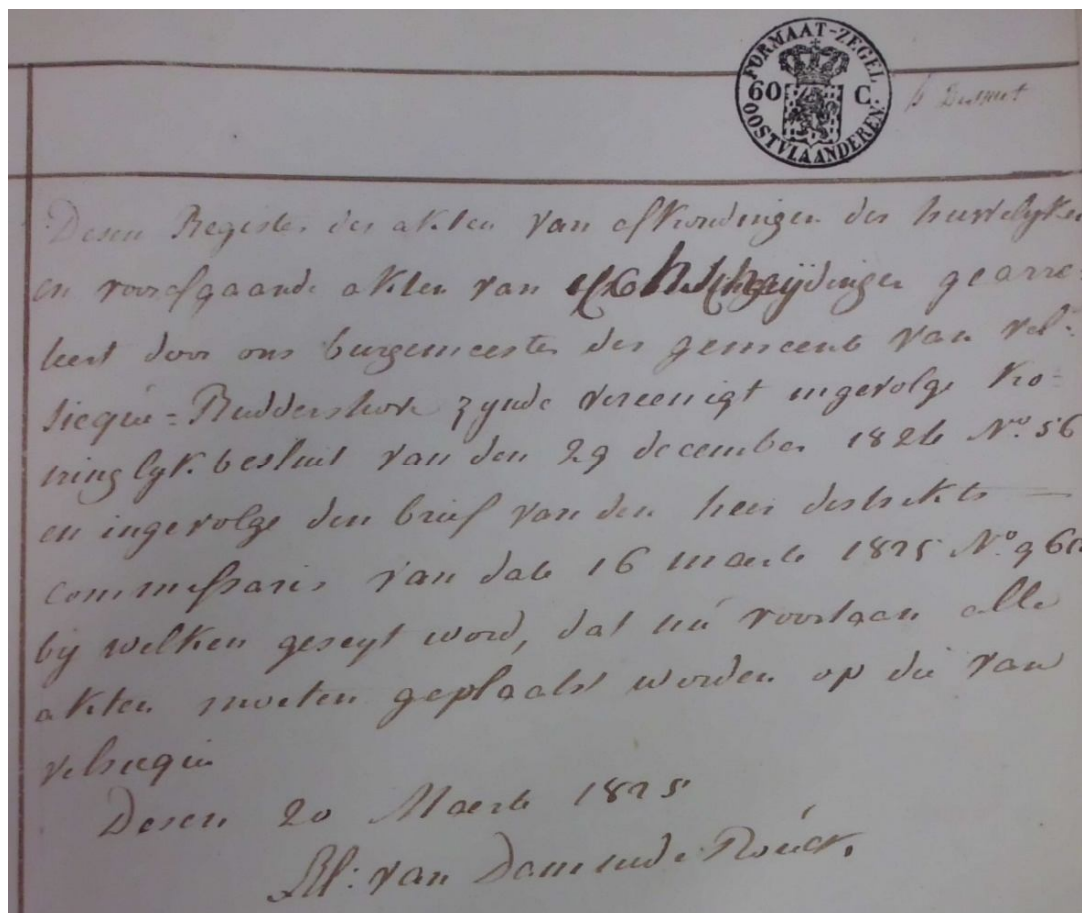 FORMAAT-ZEGEL
60 C.
OOSTVLAANDEREN.
Desen Register der akten van afkondingen der huwelyken
en voorafgaande akten van gearre
teert door ons burgemeester der gemeente van vel:
sieque = Ruddershove zynde vereenigt ingevolge ko=
ninglyk besluit van den 29 december 1824 N.o 56
en ingevolge den brief van den heer distrikts —
commissaris van date 16 maerte 1825 N.o 960
bij welken geseyt word, dat nu voortaan alle
akten moeten geplaatst worden op die van
velseque
Desen 20 Maerte 1825
van Damme de